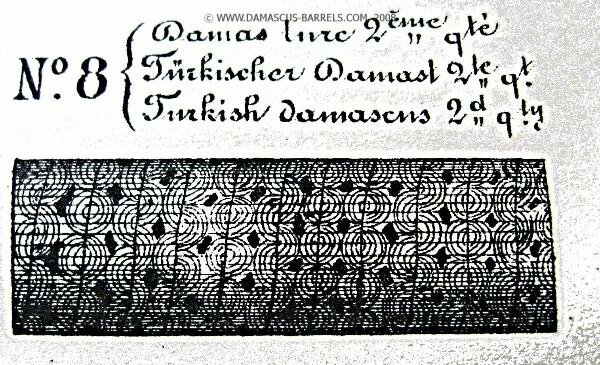 © WWW.DAMASCUS-BARRELS.COM 2008
Nº. 8
Damas turc 2ème qté
Türkischer Damast 2te qt.
Turkish damascus 2d qty